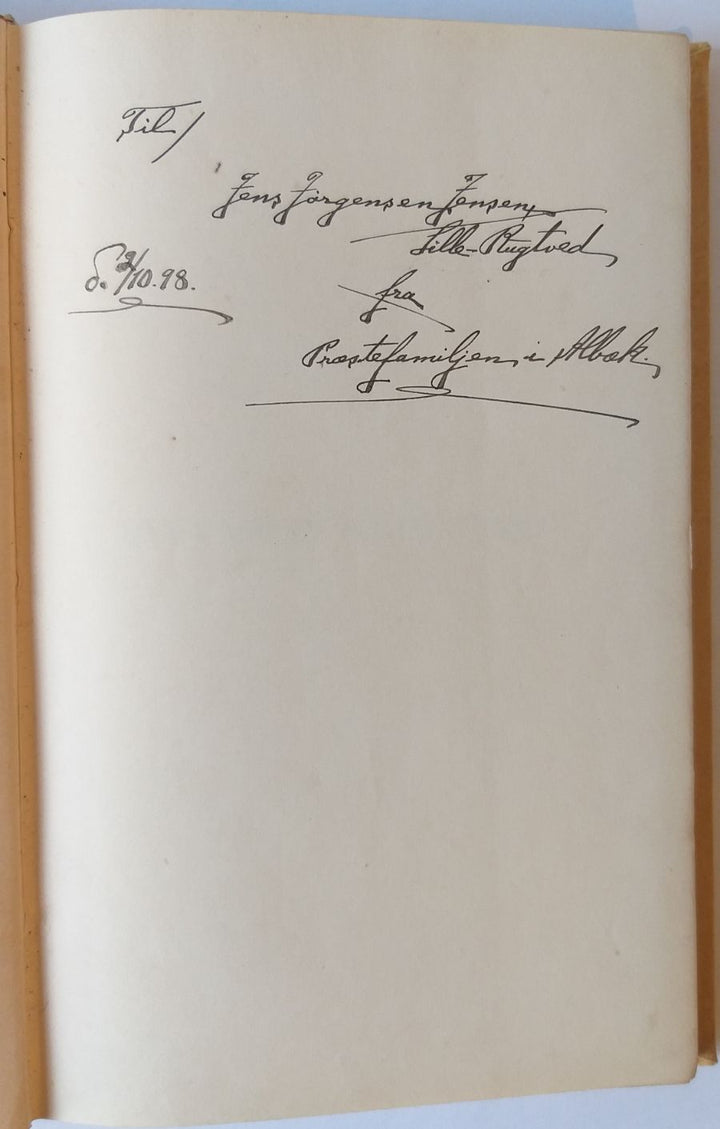 Til/
Jens Jörgensen Jensen,
Lille-Rugtved,
d. 2/10.98.
fra
Præstefamiljen, i Albæk.